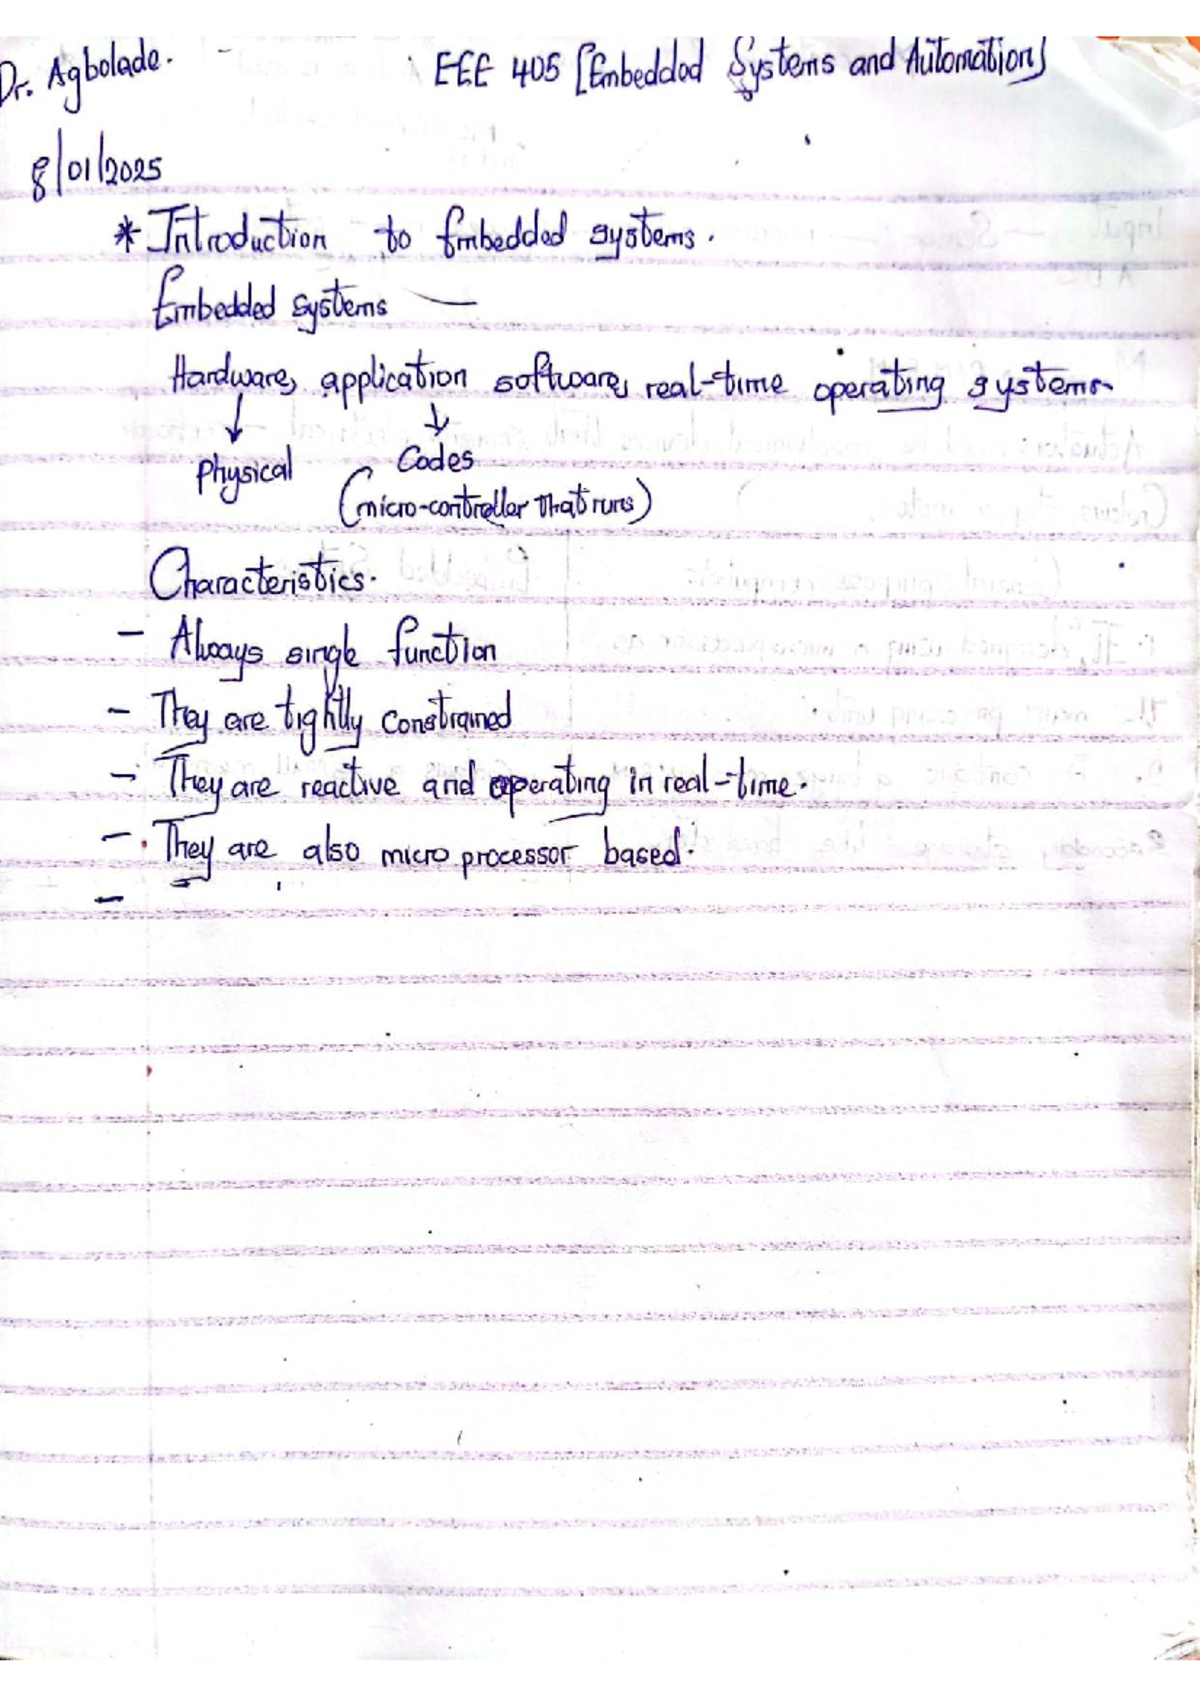 Dr. Agbolade. EEE 405 [Embedded Systems and Automation]
8/01/2025
* Introduction to Embedded systems.
Embedded systems —
Hardware, application software, real-time operating systems
↓ ↓
Physical Codes
(micro-controller that runs)
Characteristics.
- Always single function
- They are tightly constrained
- They are reactive and operating in real-time.
- They are also micro processor based.
-